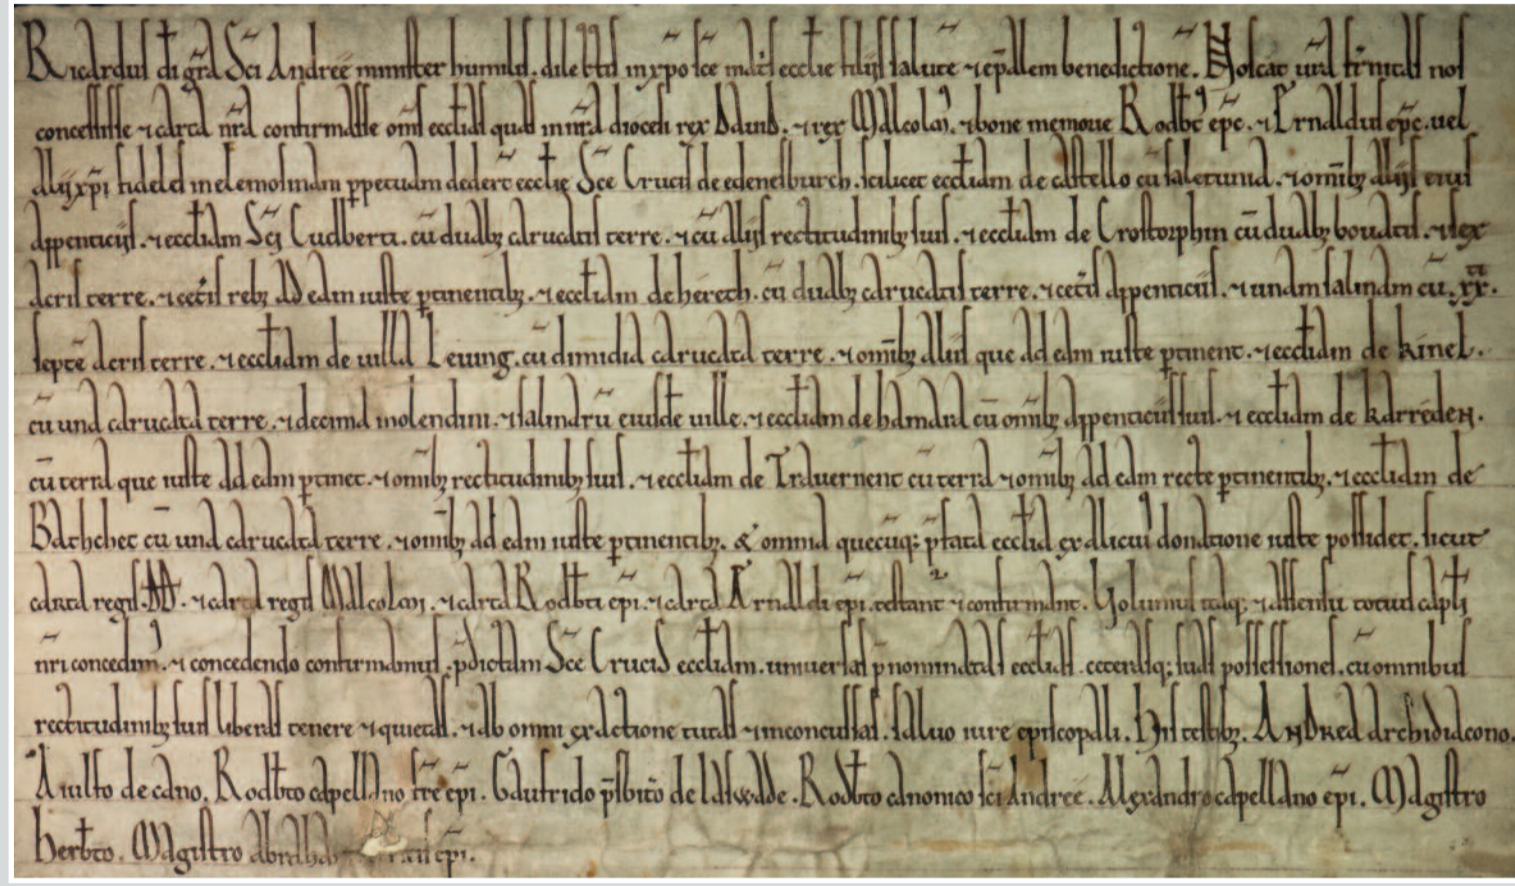 Ricardus di gr̃a Sc̃i Andree minister humilis. dilectis in xp̃o sc̃e matis eccl̃ie filiis salutẽ ⁊ ep̃alem benedictionẽ. Noscat ur̃a fr̃nitas nos
concessisse ⁊ carta nr̃a confirmasse om̃s eccl̃ias quas in nr̃a diocesi rex Dauid. ⁊ rex Malcolm̃. ⁊ bone memorie Rodbt̃ ep̃c. ⁊ Ernaldus ep̃c. uel
alij xp̃i fideles in elemosinam ꝑpetuam dedert̃ eccl̃ie Sc̃e Crucis de edenesburch. scilicet eccl̃iam de castello cũ salectuna. ⁊ omĩbȝ aliis eius
appenticiis. ⁊ eccl̃iam Sc̃i Cudberti. cũ duabȝ carucatis terre. ⁊ cũ aliis rectitudinibȝ suis. ⁊ eccl̃iam de Crostorphin cũ duabȝ bouatis. ⁊ sex
acris terre. ⁊ cet̃is rebȝ ad eam iuste ꝑtinentibȝ. ⁊ eccl̃iam de hereth. cũ duabȝ carucatis terre. ⁊ cet̃is appenticiis. ⁊ unam salinam cũ. xx.ti
septẽ acris terre. ⁊ eccl̃iam de uilla Leuing. cũ dimidia carucata terre. ⁊ omĩbȝ aliis que ad eam iuste ꝑtinent. ⁊ eccl̃iam de kinel.
cũ una carucata terre. ⁊ decima molendini. ⁊ salinarũ eiusdẽ uille. ⁊ eccl̃iam de hamaul cũ omĩbȝ appenticiis suis. ⁊ eccl̃iam de karreden.
cũ terra que iuste ad eam ꝑtinet. ⁊ omĩbȝ rectitudinibȝ suis. ⁊ eccl̃iam de Trauernent cũ terra ⁊ omĩbȝ ad eam recte ꝑtinentibȝ. ⁊ eccl̃iam de
Bathchet cũ una carucata terre. ⁊ omĩbȝ ad eam iuste ꝑtinentibȝ. & omnia quecũq; p̃fata eccl̃ia ex alicui' donatione iuste possidet. sicut
carta regis .D. ⁊ carta regis Malcolmi. ⁊ carta Rodbt̃i ep̃i. ⁊ carta Arnaldi ep̃i. testant² ⁊ confirmant. Volumus itaq; ⁊ assensu totius capl̃i
nr̃i concedim'. ⁊ concedendo confirmamus. p̃dictam Sc̃e Crucis eccl̃iam. uniuersas p̃nominatas eccl̃ias. ceterasq; suas possessiones. cũ omnibus
rectitudinibȝ suis liberas tenere ⁊ quietas. ⁊ ab omni exactione tutas ⁊ inconcussas. saluo iure episcopali. His testibȝ. Andrea archidiacono.
Aiulfo decano. Rodbt̃o capellano fr̃e ep̃i. Gaufrido p̃sbit̃o de laswade. Rodbt̃o canonico sc̃i Andree. Alexandro capellano ep̃i. Magistro
herbt̃o. Magistro abraha ep̃i.